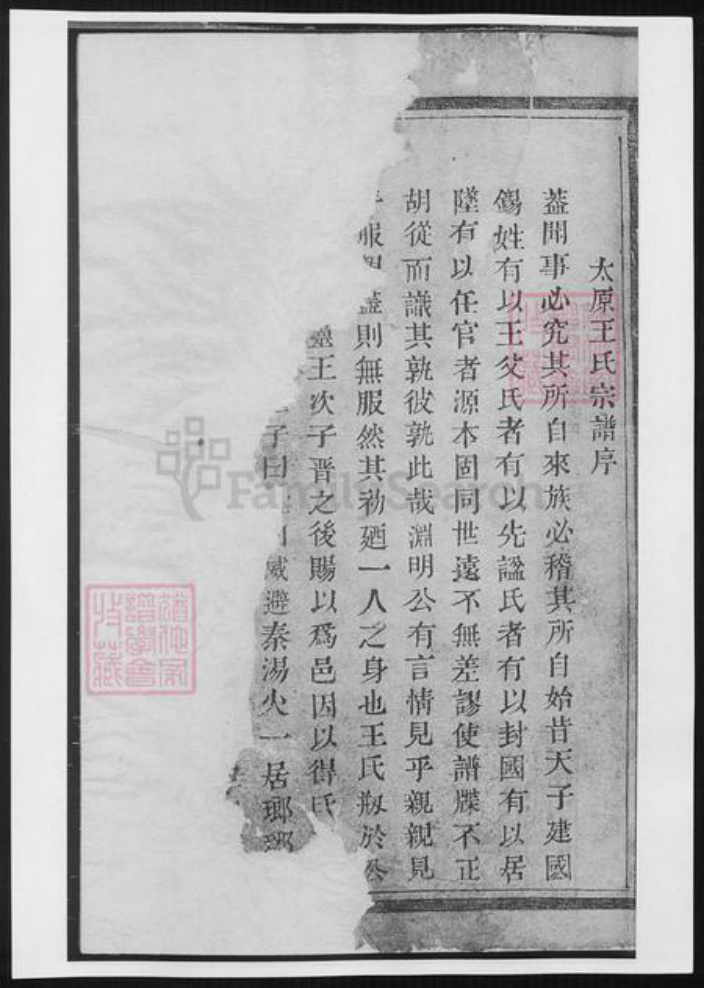 太原王氏宗譜序
蓋聞事必究其所自來族必稽其所自始昔天子建國
錫姓有以王父氏者有以先謚氏者有以封國有以居
墜有以任官者源本固同世遠不無差謬使譜牒不正
胡從而識其孰彼孰此哉淵明公有言情見乎親親見
服 盡則無服然其初廼一人之身也王氏叙於公
靈王次子晋之後賜以爲邑因以得氏
子曰 威避秦湯火一居瑯琊
FamilySearch
譜學會
收藏